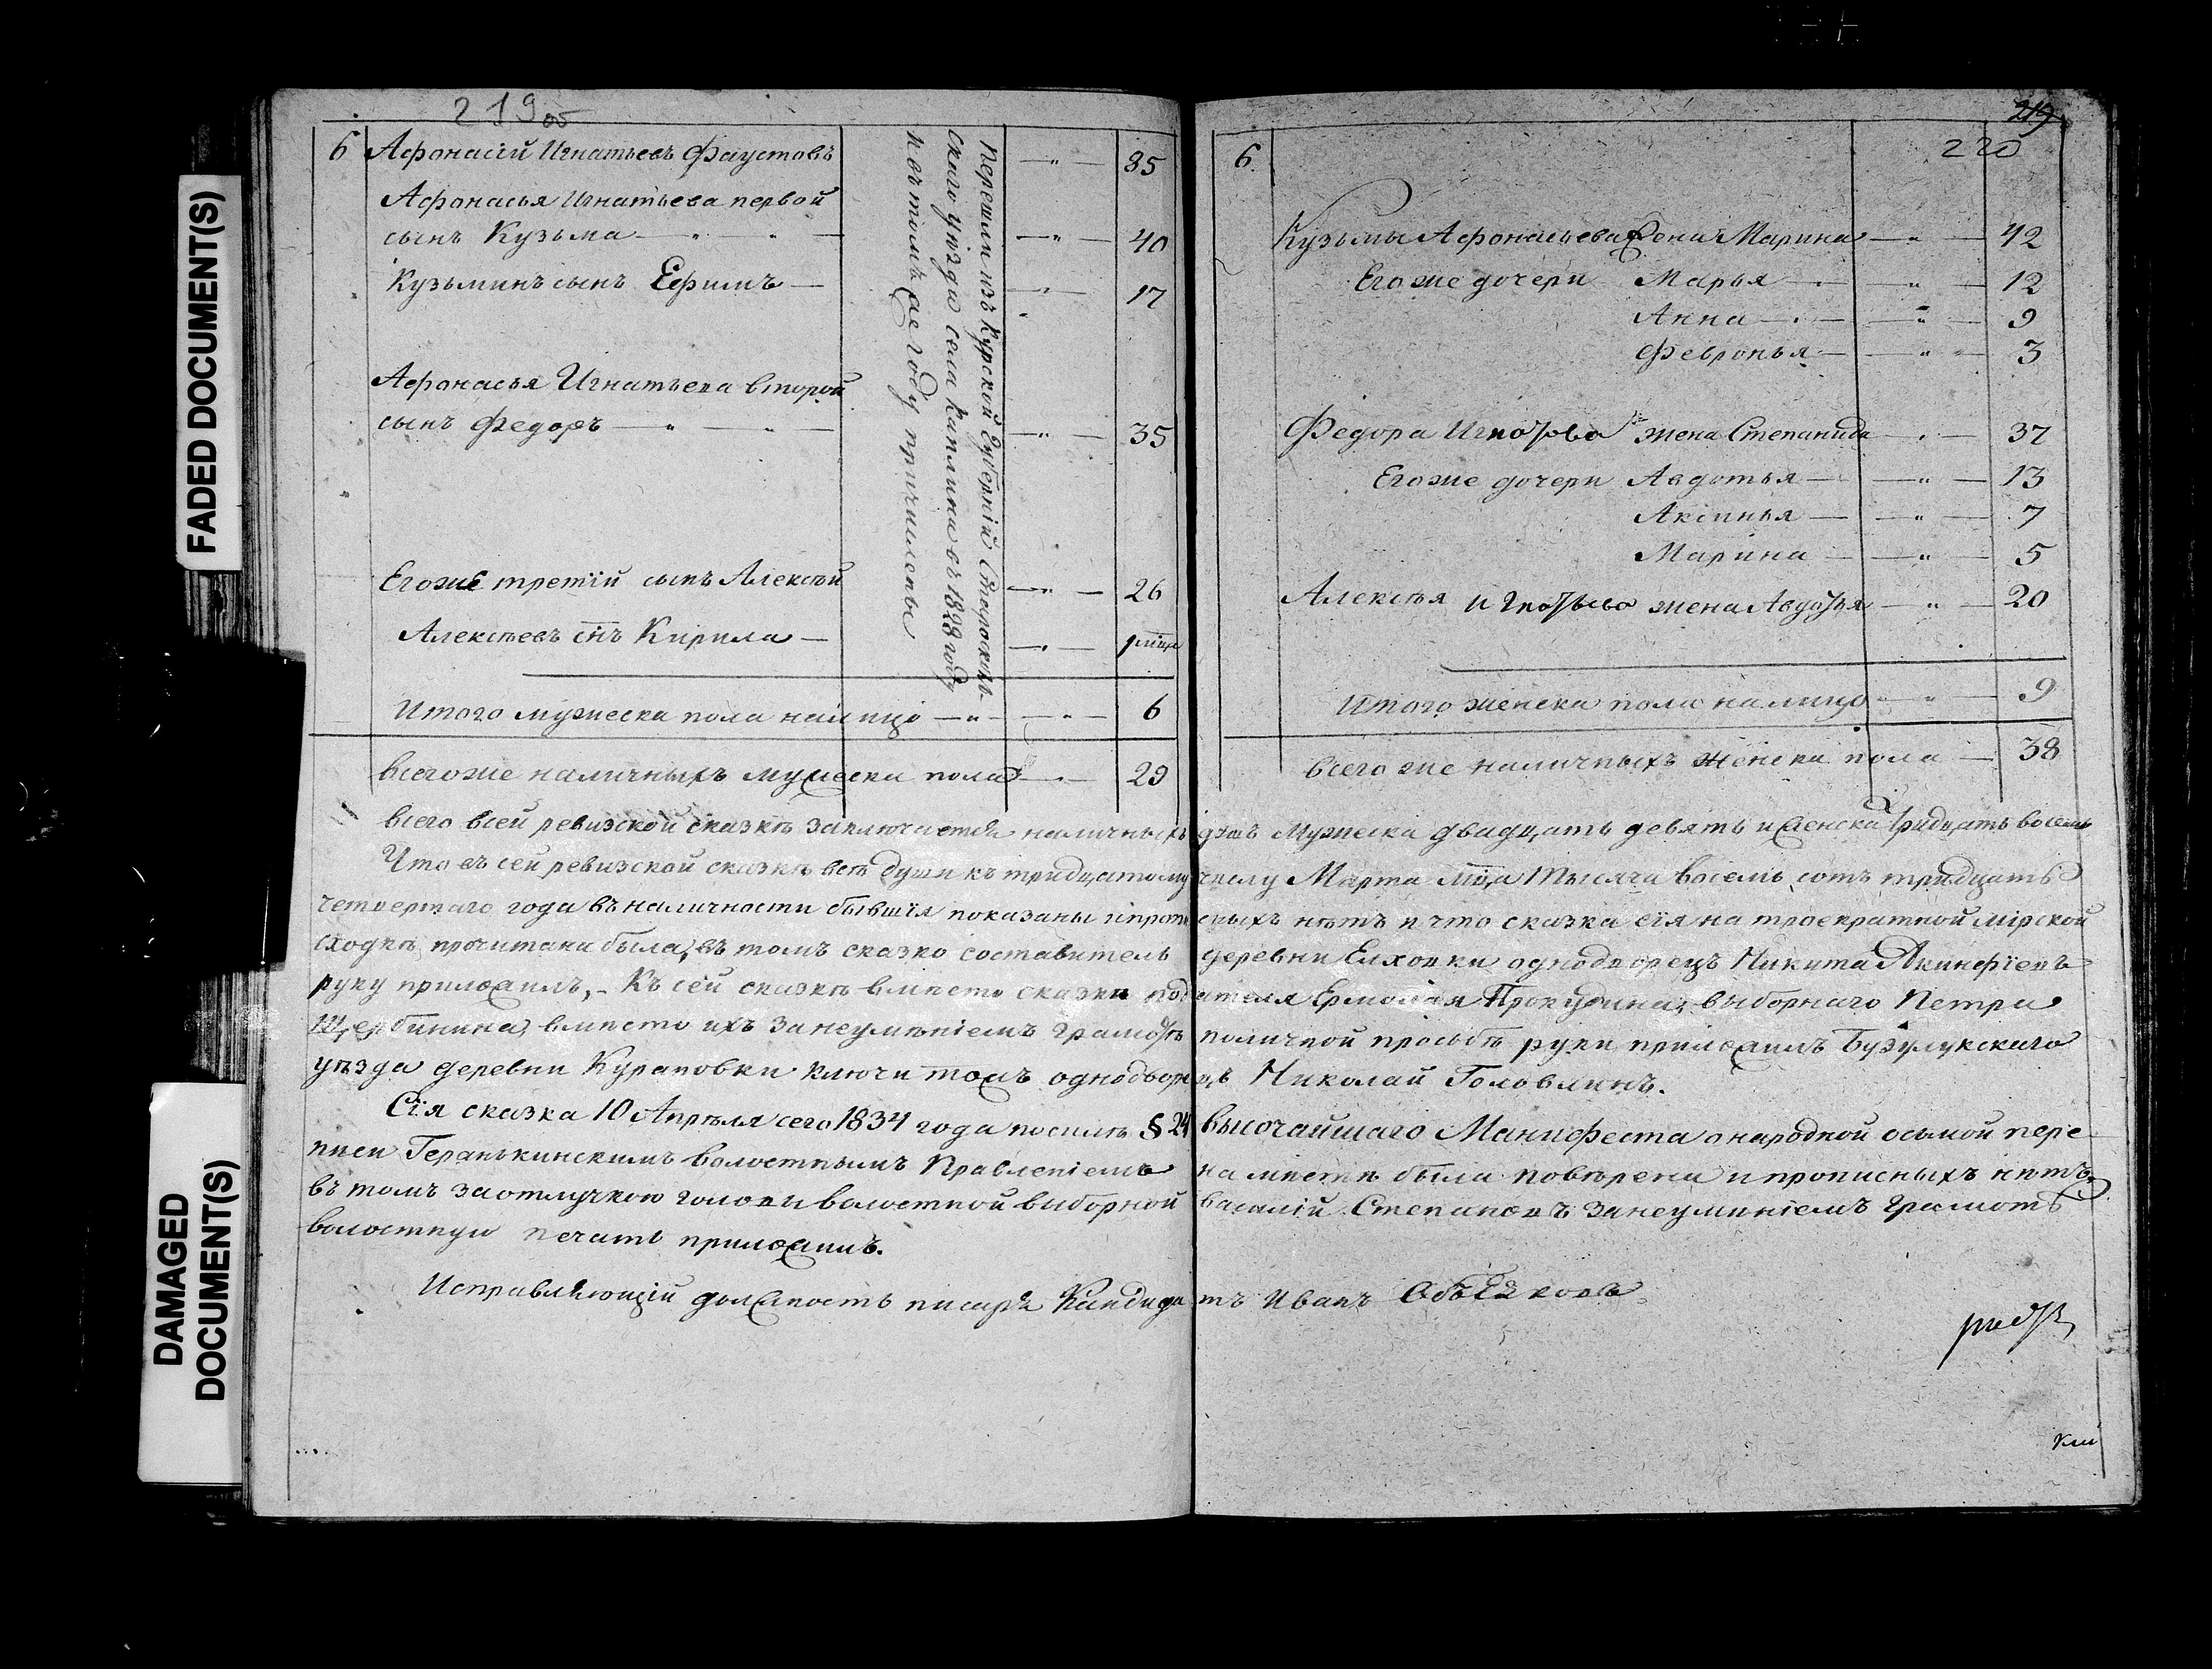 219 об
6 Афонасій Игнатьевъ Фаустовъ — " — 85
Афонасья Игнатьева первой
сынъ Кузьма — " — 40
Кузьминъ сынъ Ефимъ — " — 17
Афонасья Игнатьева второй
сынъ Федоръ — " — " — 35
Егоже третій сынъ Алексѣй — " — 26
Алексѣевъ снъ Кирила — " — 1 мца
Перешли изъ Курской Губерніи Староскол-
скаго уѣзда села Каплина въ 1828 году
и въ томъ же году причислены
Итого мужеска пола налицо — " — " — 6
Всегоже наличныхъ мужеска пола — " — 29
219
220
6.
Кузьмы Афонасьева жена Марина — " — 42
Егоже дочери Марья — " — 12
Анна — " — 9
Февронья — " — 3
Федора Игнатьева жена Степанида — " — 37
Егоже дочери Авдотья — " — 13
Аксинья — " — 7
Марина — " — 5
Алексѣя Игнатьева жена Авдотья — " — 20
Итого женска пола налицо — " — 9
Всего же наличныхъ женска пола — 38
Всего всей ревизской сказкѣ заключается наличныхъ душъ Мужеска двадцать девять и женска тридцать восемь
Что въ сей ревизской сказкѣ всѣ души къ тридцатому числу Марта мца тысяча восемь сотъ тридцать
четвертаго года въ наличности бывшія показаны и прописныхъ нѣтъ и что сказка сія на троекратной мірской
сходкѣ прочитана была, въ томъ сказко составитель деревни Елховки однодворецъ Никита Акинфіевъ
руку приложилъ, - Къ сей сказкѣ вмѣсто сказки подателя Ермолая Прокудина, выборнаго Петра
Щербинина, вмѣсто ихъ за неумѣніемъ грамотѣ поличной просьбѣ руки приложилъ Бузулукскаго
уѣзда деревни Кураповки ключи тожъ однодворецъ Николай Головлинъ.
Сія сказка 10 Апрѣля сего 1834 года посилѣ § 24 Высочайшаго Манифеста о народной осьмой пере
писи Геранькинскимъ волостнымъ Правленіемъ на мѣстѣ была повѣрена и прописныхъ нѣтъ,
въ томъ заотлучкою головы волостной выборной Василій Степановъ за неумѣніемъ грамотѣ
волостную печать приложилъ.
Исправляющій должность писаря Кандидатъ Иванъ Объедковъ